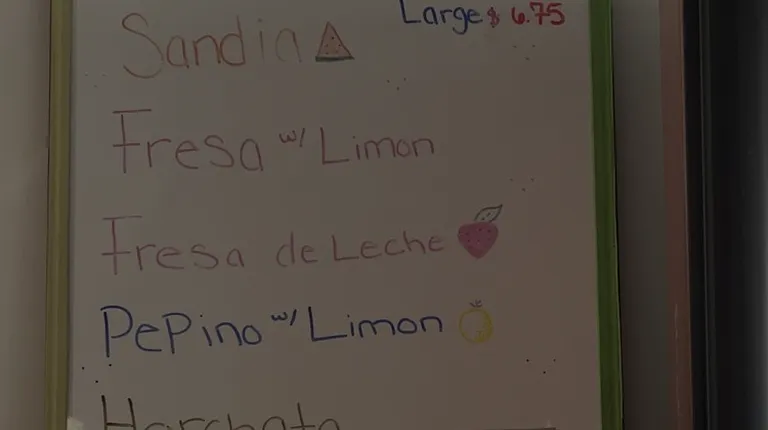 Large $ 6.75
Sandia
Fresa w/ Limon
Fresa de Leche
PePino w/ Limon
Horchata